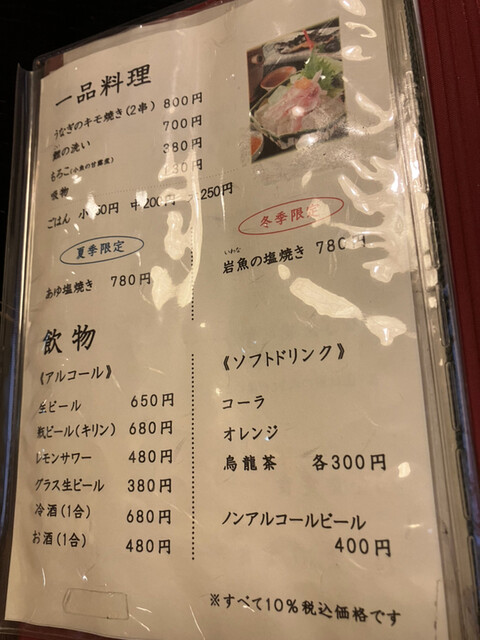 一品料理
うなぎのキモ焼き(2串) 800円
鯉の洗い 700円
もろこ(小魚の甘露煮) 380円
吸物 30円
ごはん 小 50円 中200円 250円
夏季限定
あゆ塩焼き 780円
冬季限定
いわな
岩魚の塩焼き 780円
飲物
《アルコール》
生ビール 650円
瓶ビール(キリン) 680円
レモンサワー 480円
グラス生ビール 380円
冷酒(1合) 680円
お酒(1合) 480円
《ソフトドリンク》
コーラ
オレンジ
烏龍茶 各300円
ノンアルコールビール
400円
※すべて10%税込価格です